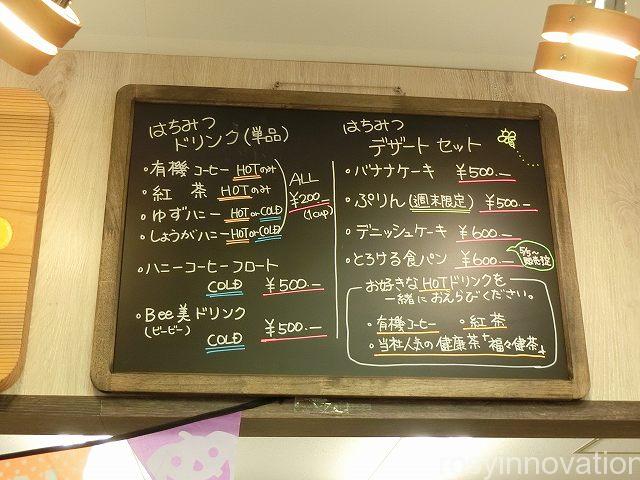 はちみつ
ドリンク(単品)
・有機コーヒー HOTのみ
・紅 茶 HOTのみ
・ゆずハニー HOT or COLD
・しょうがハニー HOT or COLD
ALL
¥200.-
(1cup)
・ハニーコーヒーフロート
COLD ¥500.-
・Bee美ドリンク
(ビービー)
COLD ¥500.-
はちみつ
デザート セット
・バナナケーキ ¥500.-
・ぷりん(週末限定) ¥500.-
・デニッシュケーキ ¥600.-
・とろける食パン ¥600.-
お好きなHOTドリンクを
一緒におえらびください。
・有機コーヒー ・紅茶
・当社人気の健康茶「福々健茶」
rosyinnovation